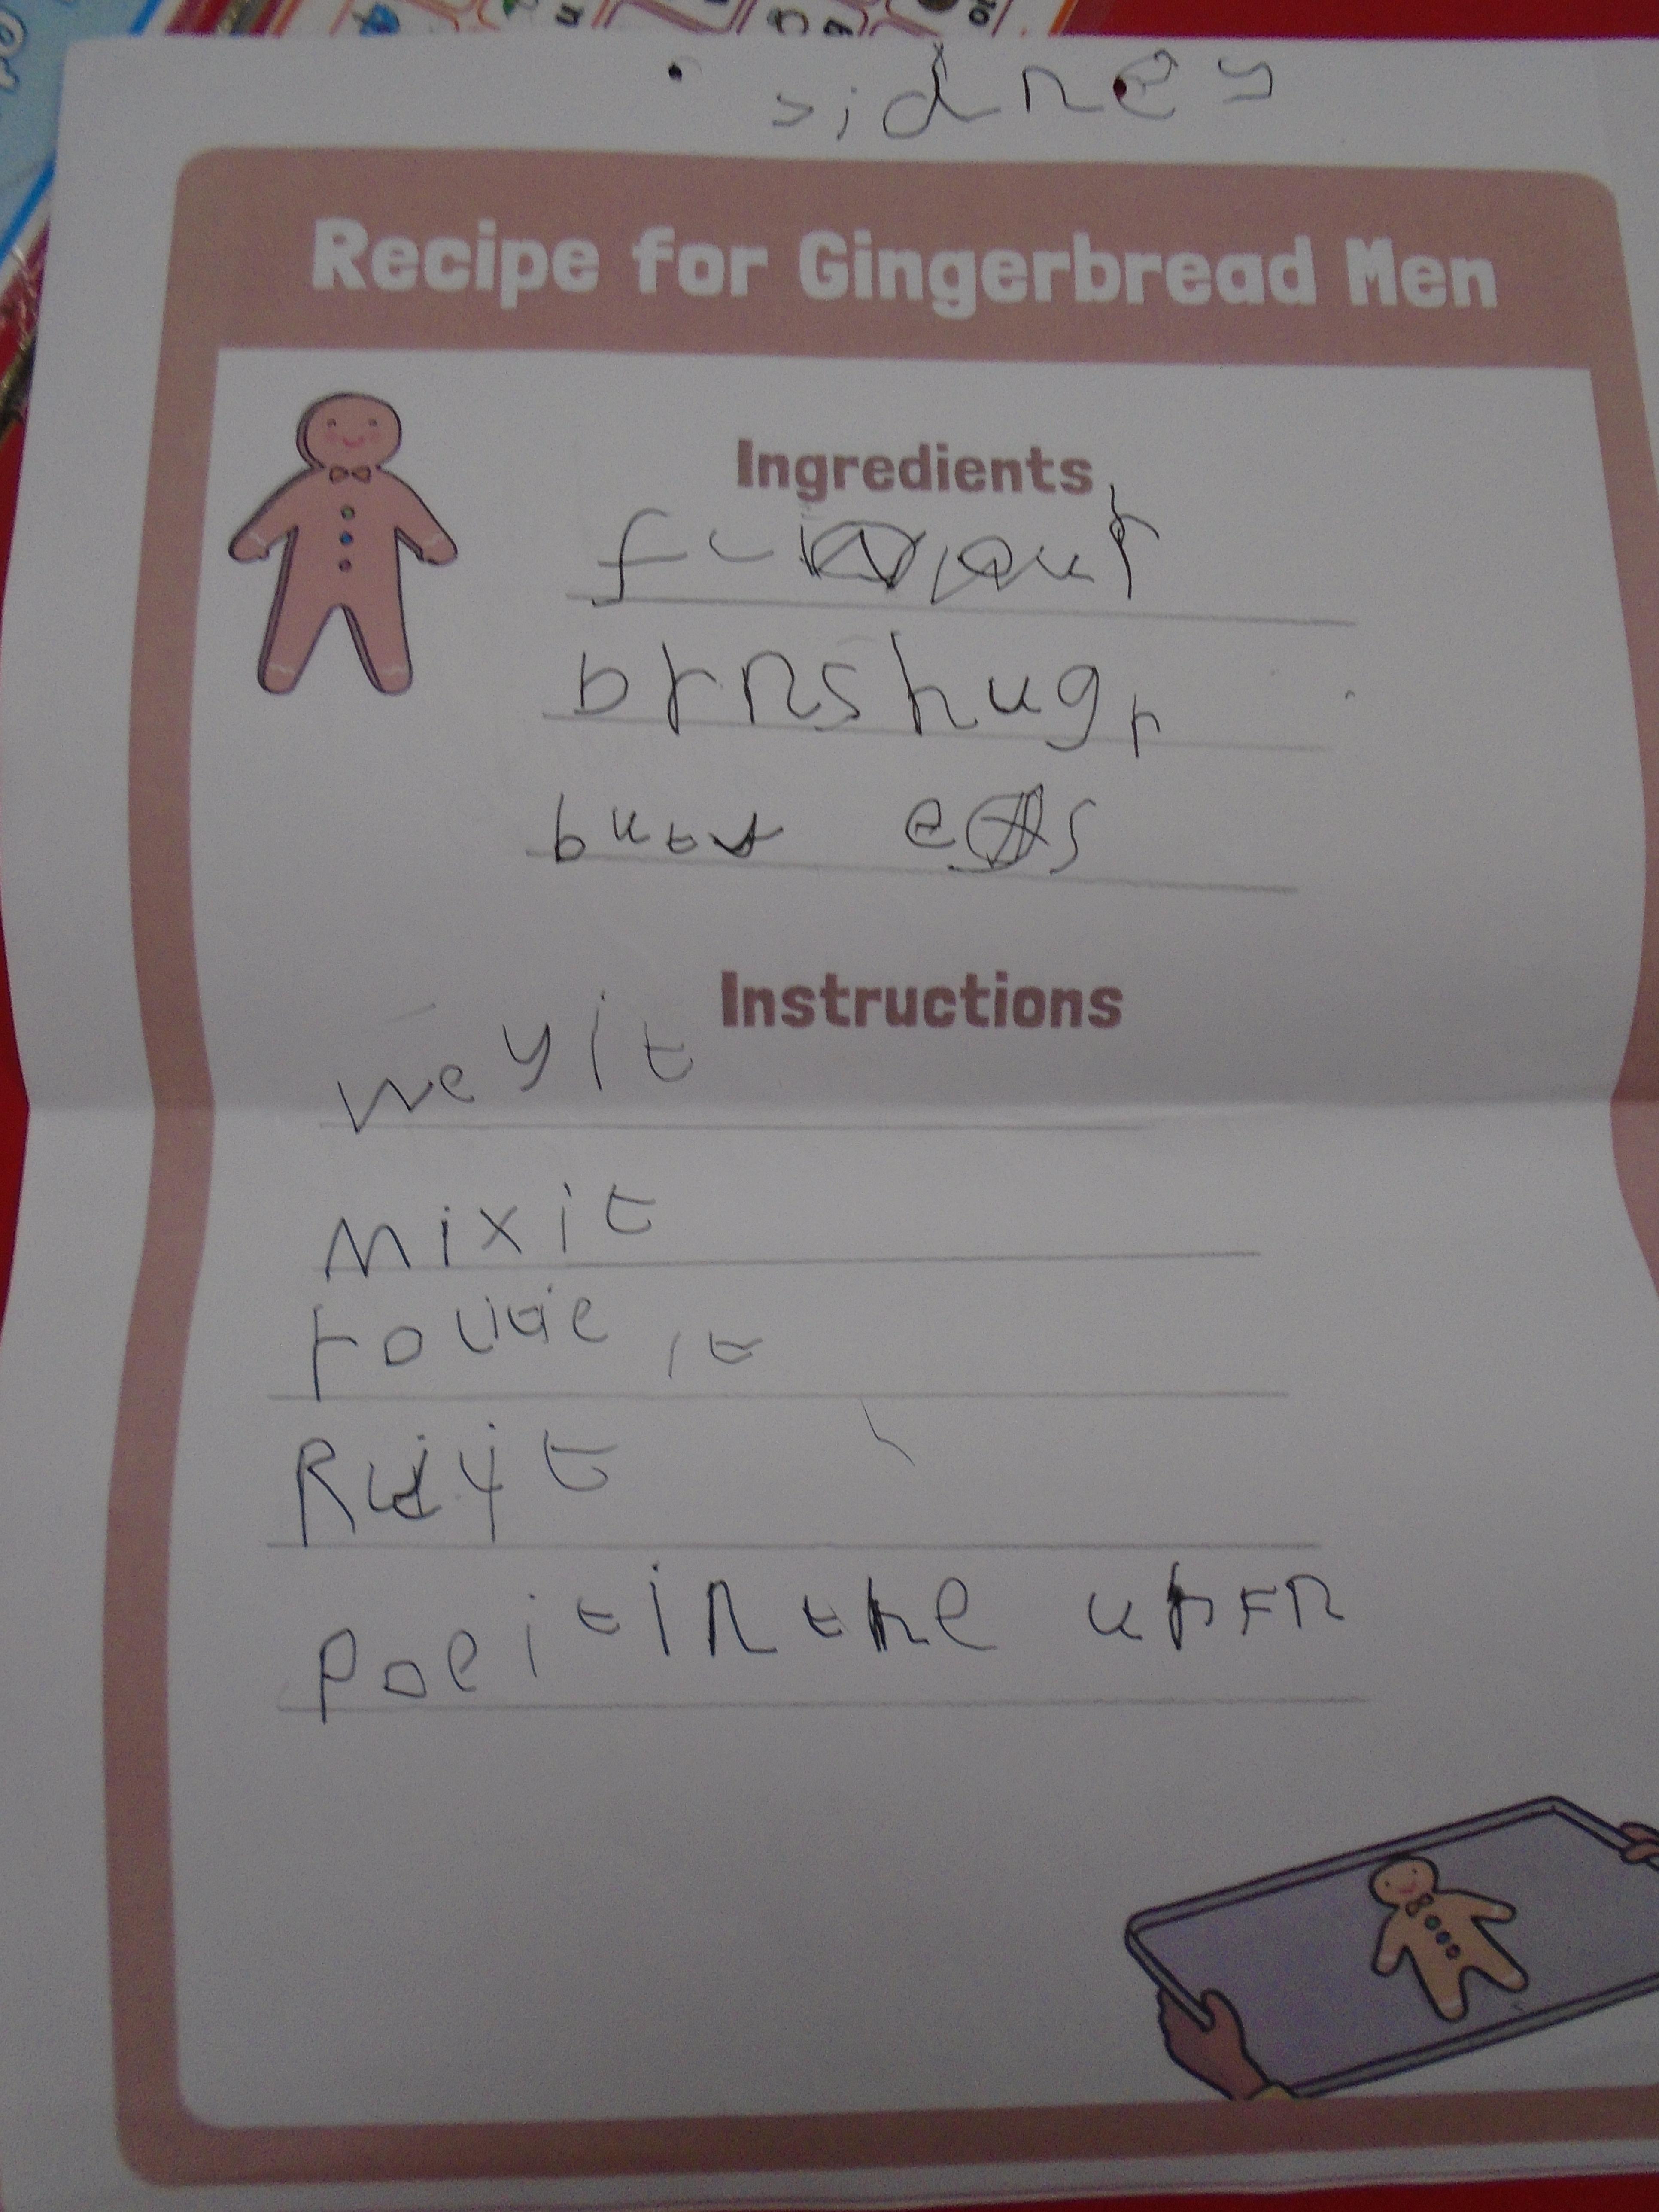 sidney
Recipe for Gingerbread Men
Ingredients
brnshugr
buttr eggs
Instructions
weyit
mixit
it
poeitinthe